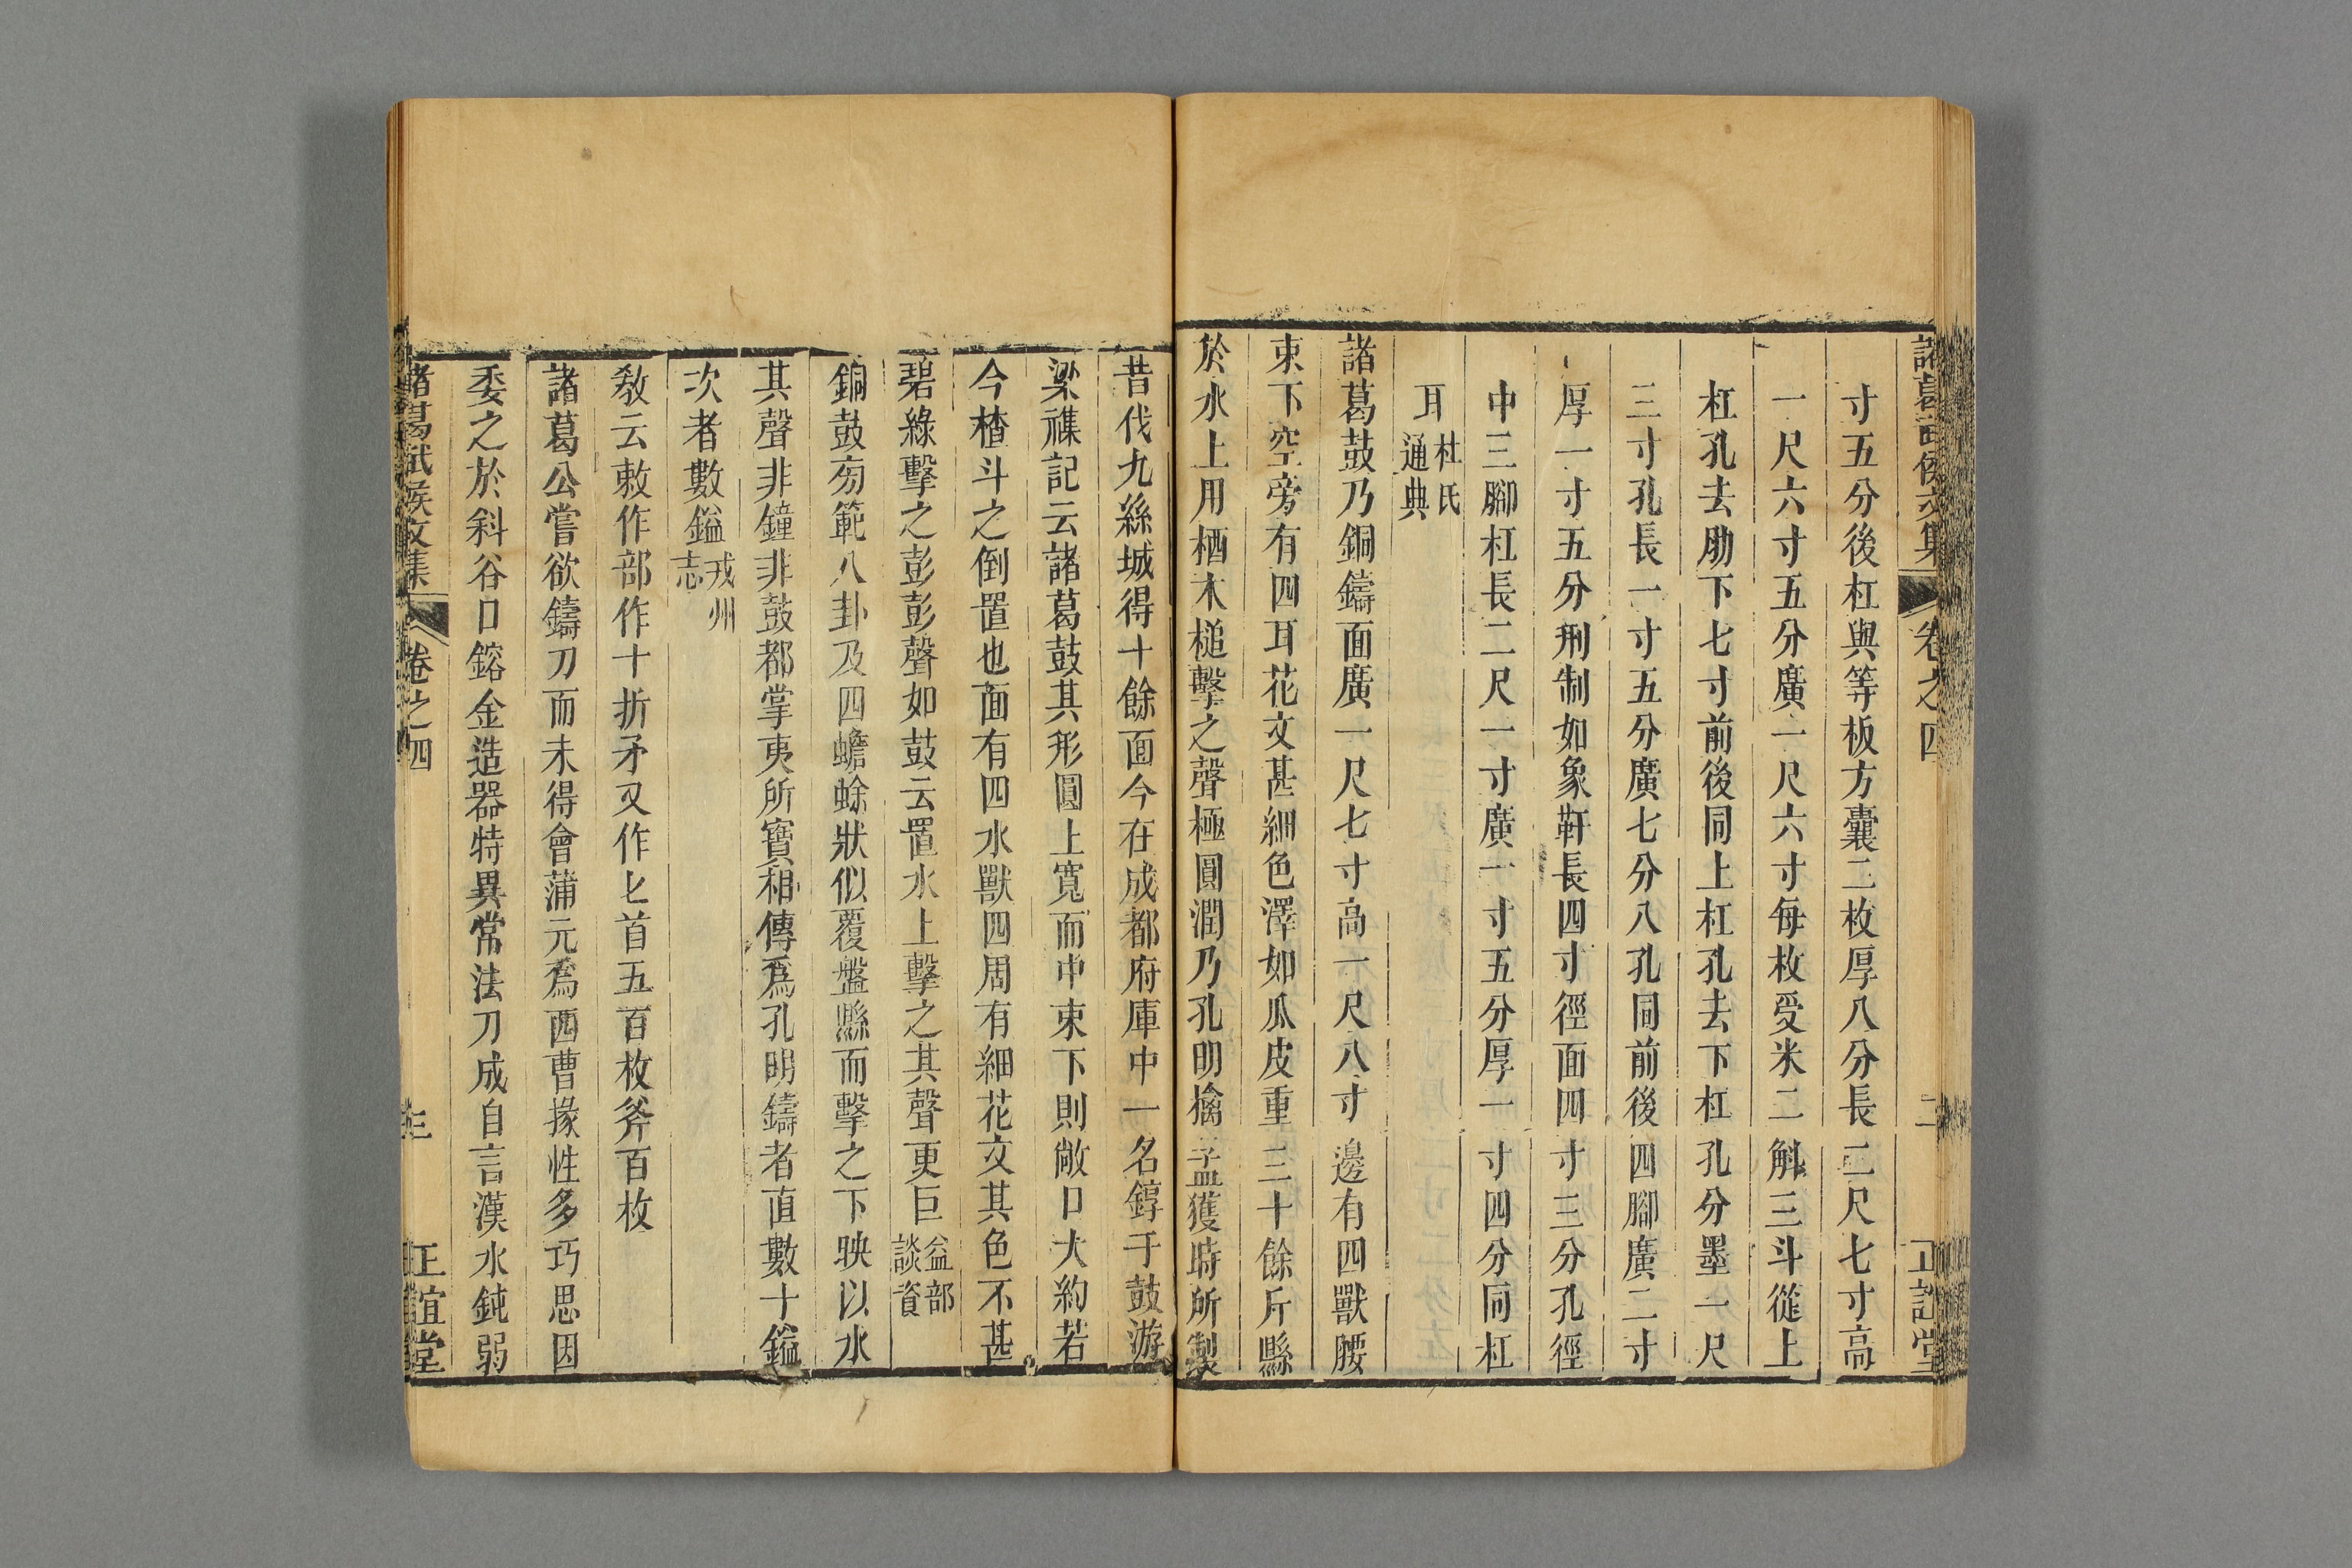 諸葛武侯文集 卷之四 二 正誼堂
寸五分後杠與等板方囊二枚厚八分長二尺七寸高
一尺六寸五分廣一尺六寸每枚受米二斛三斗從上
杠孔去肋下七寸前後同上杠孔去下杠孔分墨一尺
三寸孔長一寸五分廣七分八孔同前後四腳廣二寸
厚一寸五分刑制如象靬長四寸徑面四寸三分孔徑
中三腳杠長二尺一寸廣一寸五分厚一寸四分同杠
耳杜氏通典
諸葛鼓乃銅鑄面廣一尺七寸高一尺八寸邊有四獸腰
束下空旁有四耳花文甚細色澤如瓜皮重二十餘斤縣
於水上用楢木槌擊之聲極圓潤乃孔明擒孟獲時所製
昔伐九絲城得十餘面今在成都府庫中一名錞于鼓游
梁襍記云諸葛鼓其形圓上寬而中束下則敞口大約若
今楂斗之倒置也面有四水獸四周有細花文其色不甚
碧綠擊之彭彭聲如鼓云置水上擊之其聲更巨益部談資
銅鼓旁範八卦及四蟾蜍狀似覆盤縣而擊之下映以水
其聲非鐘非鼓都掌夷所寶相傳爲孔明鑄者直數十鎰
次者數鎰戎州志
教云敕作部作十折矛又作匕首五百枚斧百枚
諸葛公嘗欲鑄刀而未得會蒲元爲西曹掾性多巧思因
委之於斜谷口鎔金造器特異常法刀成自言漢水鈍弱
諸葛武侯文集 卷之四 三 正誼堂